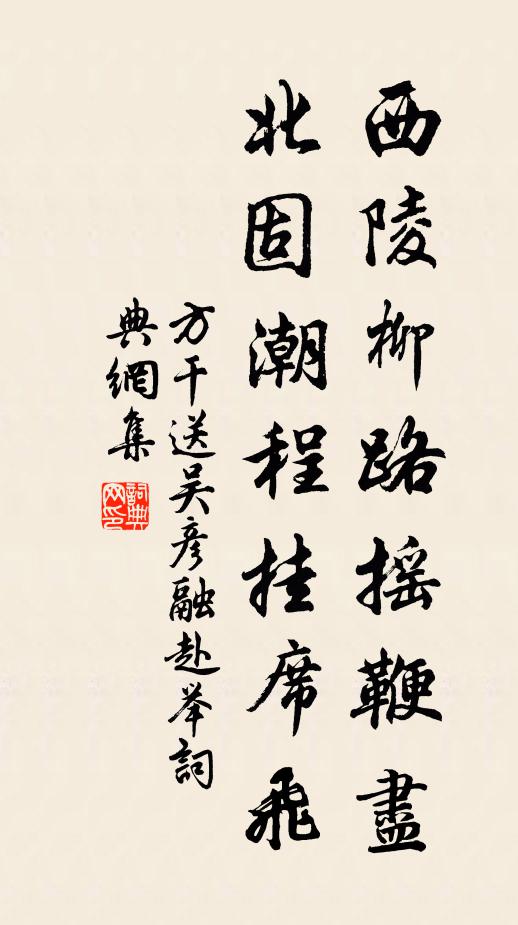 西陵柳路摇鞭盡
北固潮程挂席飛
方干送吴彦融赴举詞
典網集
詞典
网印